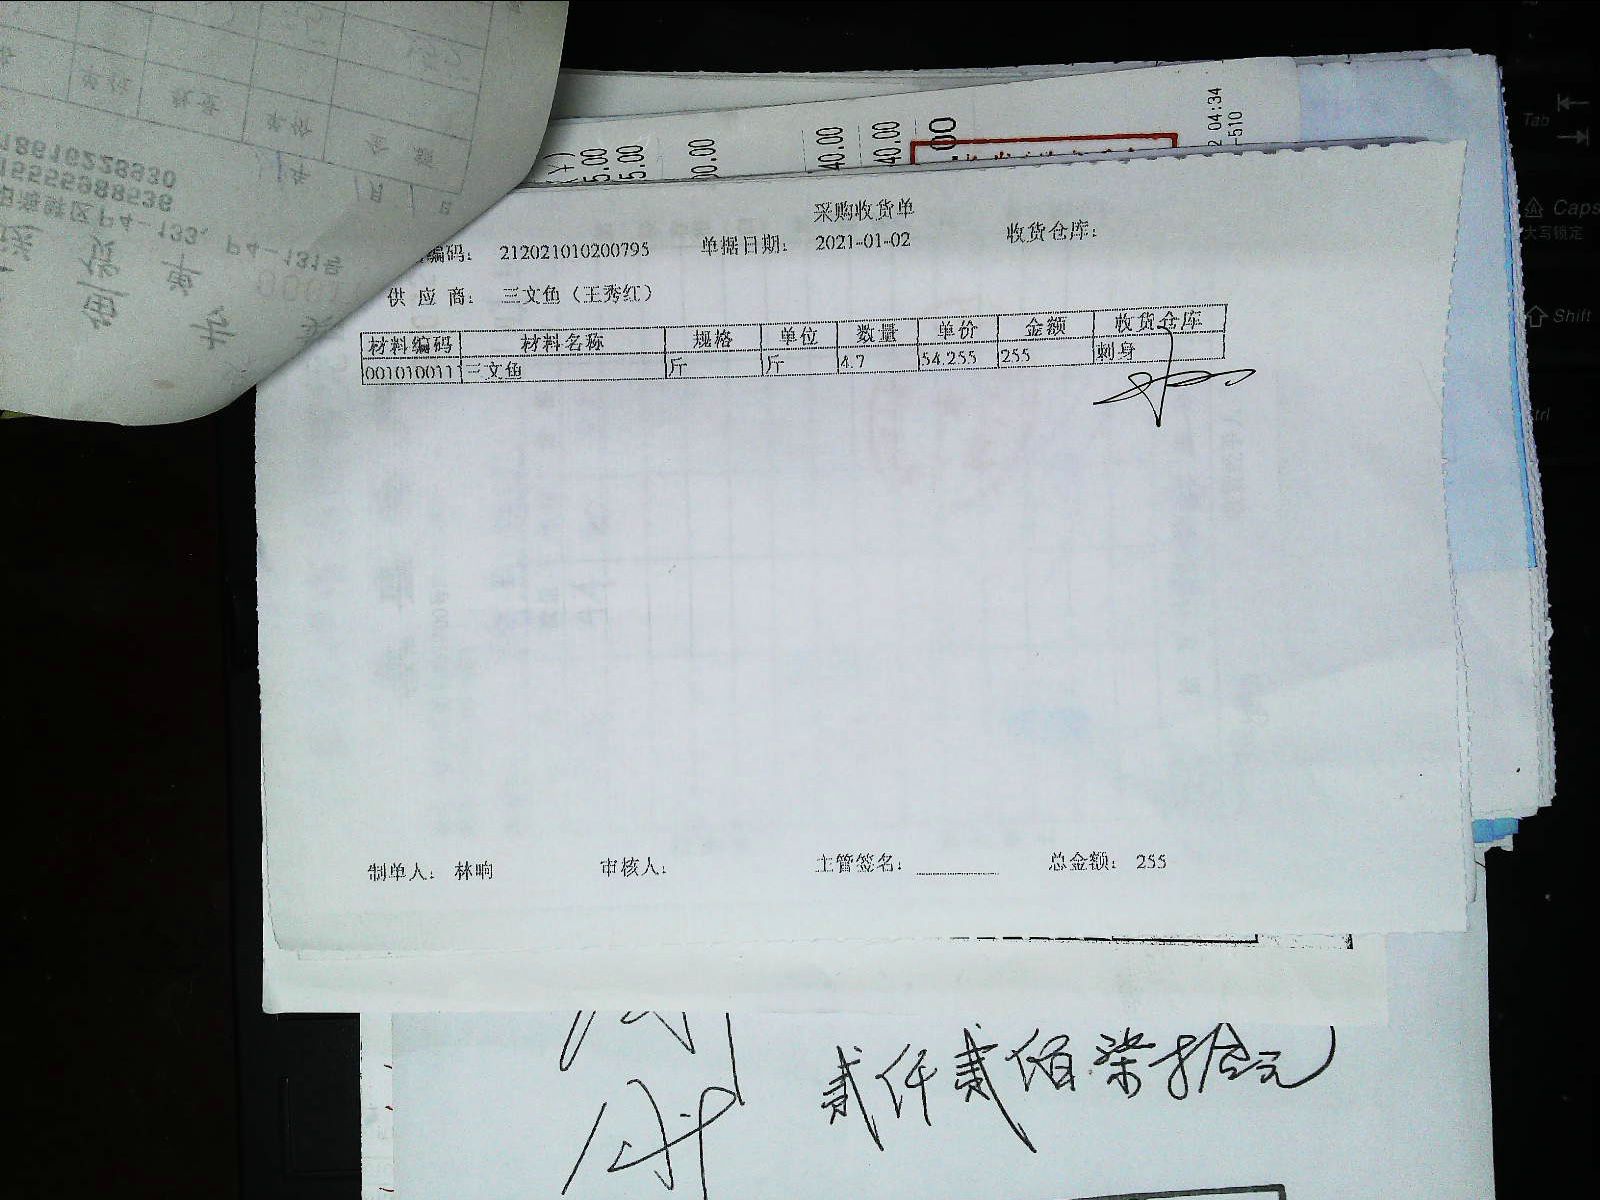 采购收货单
编码： 212021010200795 单据日期： 2021-01-02 收货仓库：
供 应 商： 三文鱼（王秀红）
材料编码 材料名称 规格 单位 数量 单价 金额 收货仓库
001010011 三文鱼 斤 斤 4.7 54.255 255 刺身
制单人： 林响 审核人： 主管签名： 总金额： 255
贰仟贰佰柒拾元
5.00
5.00
00.00
40.00
40.00
00
2 04:34
-510
单位 数量 单价 金 额
年 月 日
18610228930
15555988536
P4-133、P4-131号
货 单
Tab
Caps
大写锁定
Shift